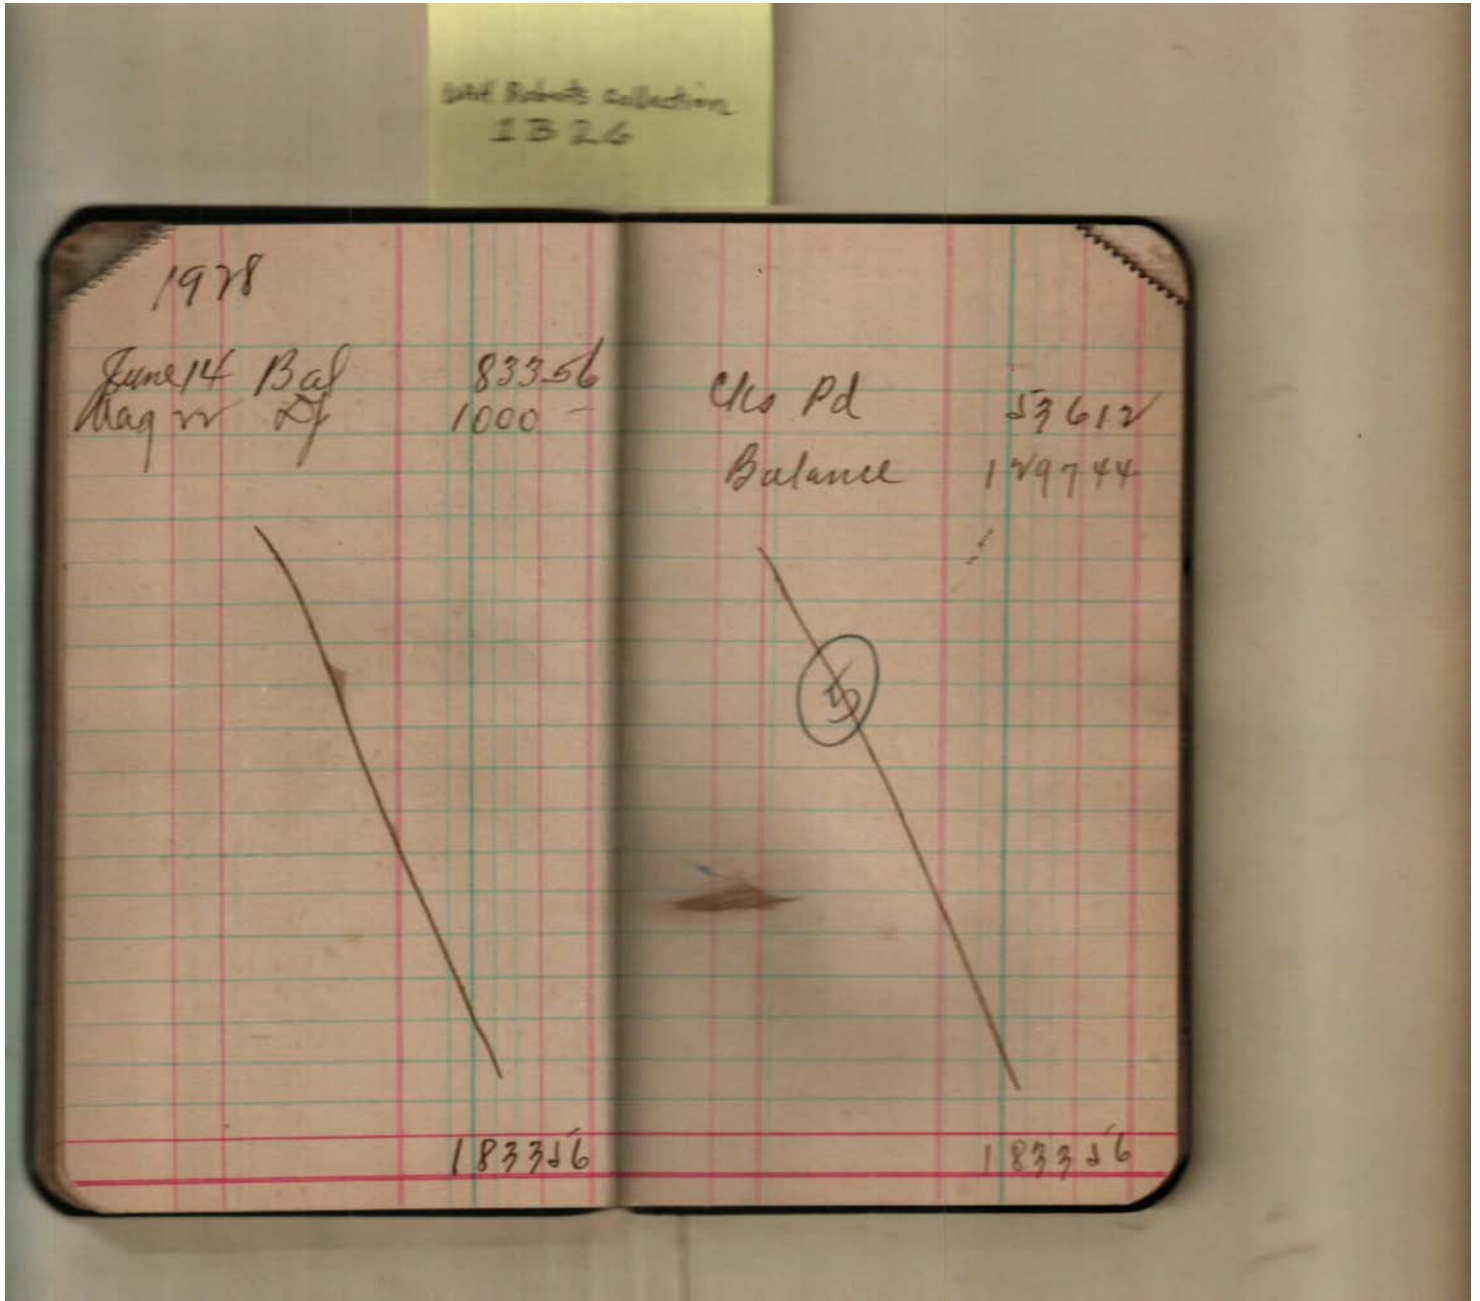 UAH Roberts Collection
1B26
1928
June 14 Bal 833 56
Aug 22 Df 1000 -
1833 56
Cks Pd 536 12
Balance 1297 44
5
1833 56